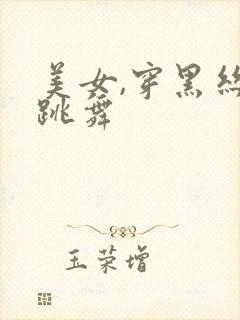 美女,穿黑丝
跳舞
玉荣增